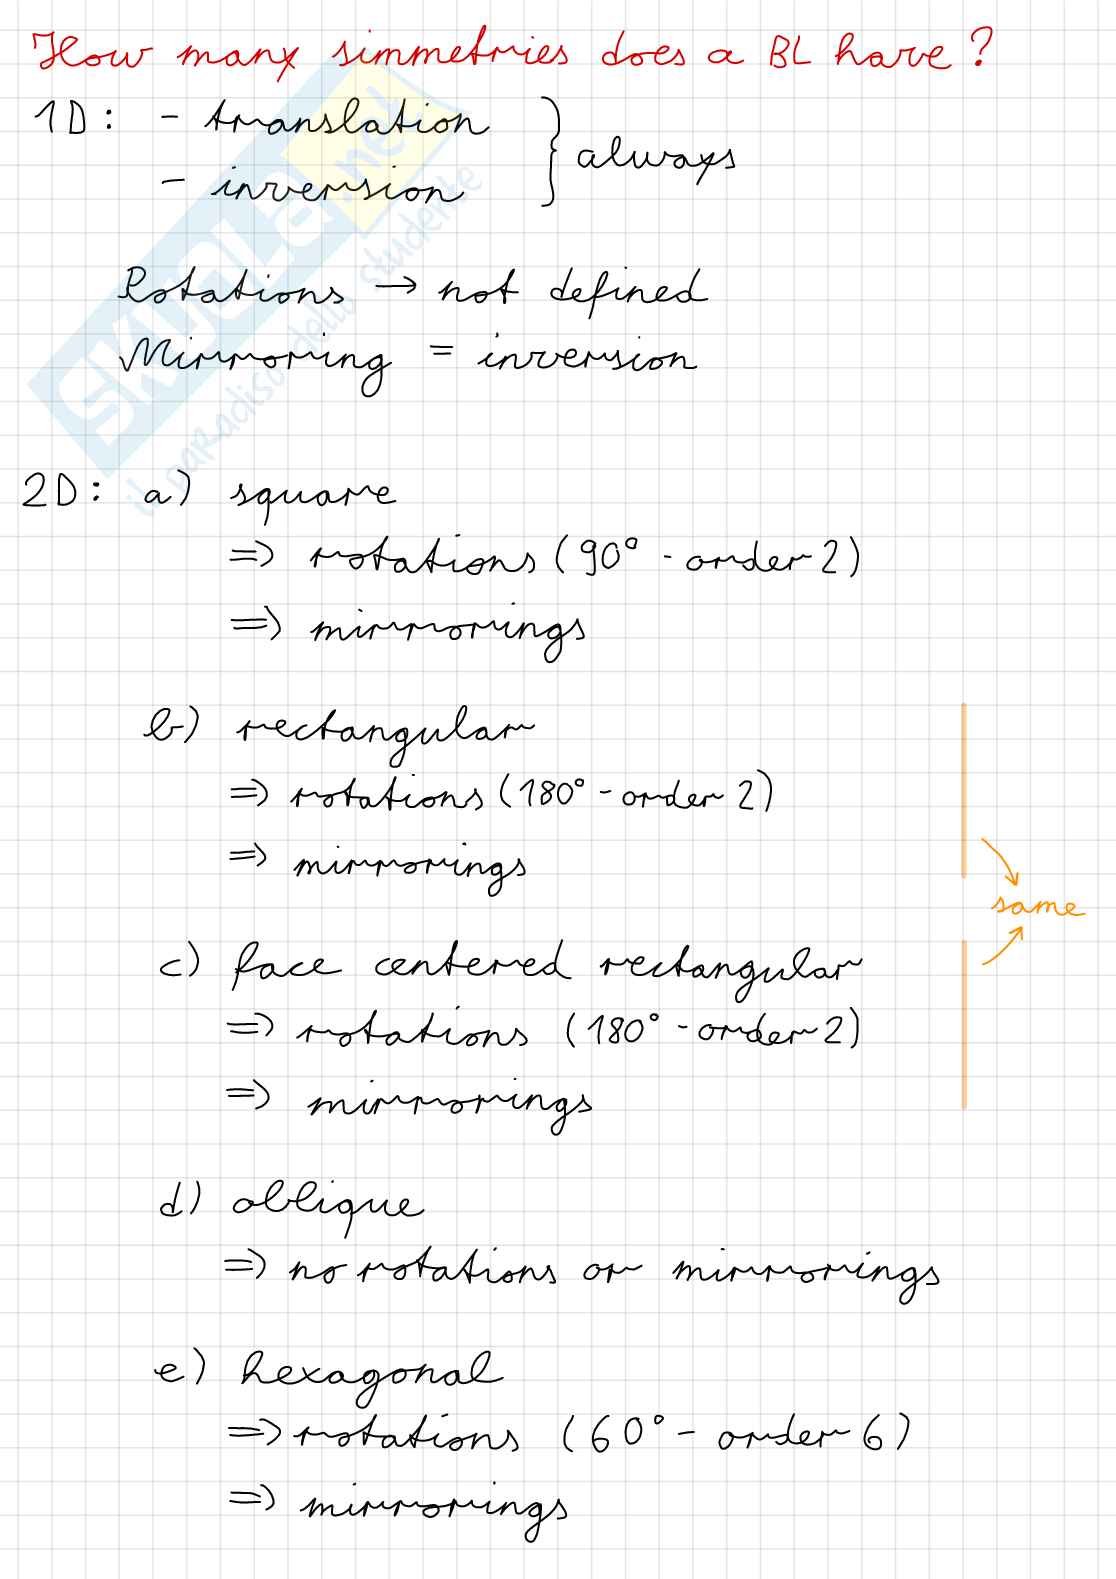 How many simmetries does a BL have?
1D: - translation
- inversion
} always
Rotations → not defined
Mirroring = inversion
2D: a) square
=> rotations (90° - order 2)
=> mirrorings
b) rectangular
=> rotations (180° - order 2)
=> mirrorings
same
c) face centered rectangular
=> rotations (180° - order 2)
=> mirrorings
d) oblique
=> no rotations or mirrorings
e) hexagonal
=> rotations (60° - order 6)
=> mirrorings
SKUOLA.net
il paradiso dello studente